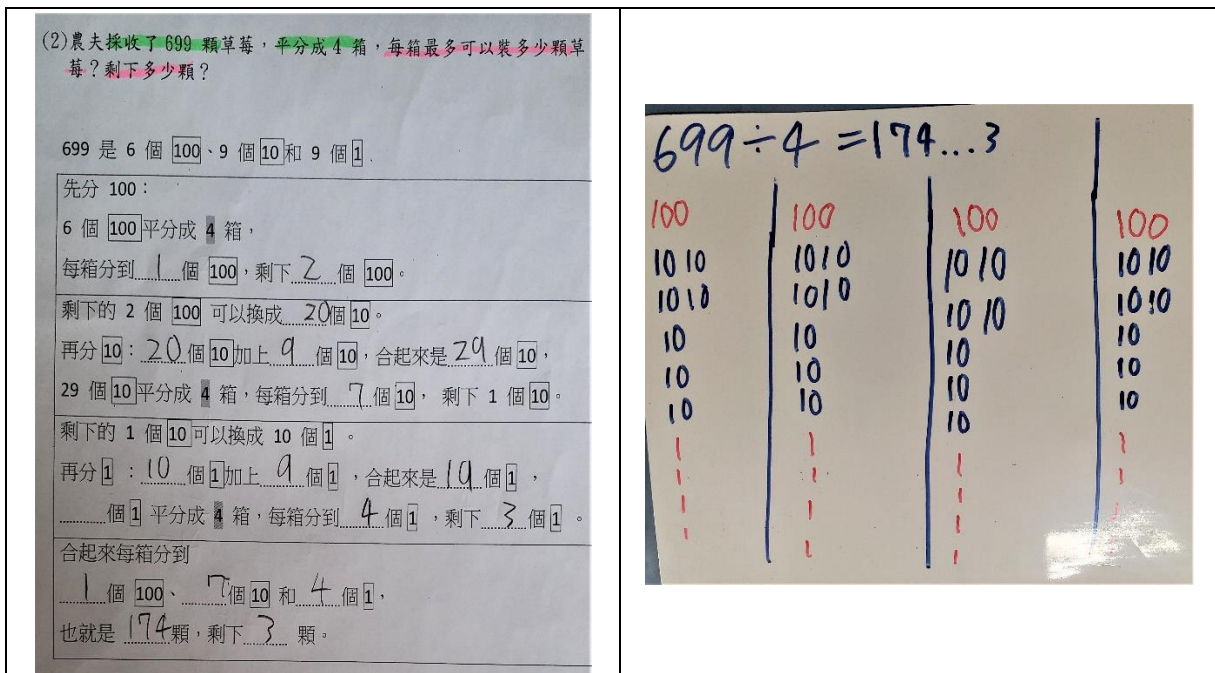 (2)農夫採收了 699 顆草莓，平分成 4 箱，每箱最多可以裝多少顆草
莓？剩下多少顆？
699 是 6 個 100、9 個 10 和 9 個 1.
先分 100：
6 個 100 平分成 4 箱，
每箱分到 1 個 100，剩下 2 個 100。
剩下的 2 個 100 可以換成 20 個 10。
再分 10：20 個 10 加上 9 個 10，合起來是 29 個 10，
29 個 10 平分成 4 箱，每箱分到 7 個 10， 剩下 1 個 10。
剩下的 1 個 10 可以換成 10 個 1 。
再分 1 ：10 個 1 加上 9 個 1 ，合起來是 19 個 1 ，
個 1 平分成 4 箱，每箱分到 4 個 1 ，剩下 3 個 1 。
合起來每箱分到
1 個 100、 7 個 10 和 4 個 1，
也就是 174 顆，剩下 3 顆。
699÷4=174...3
100 100 100 100
10 10 10 10 10 10 10 10
10 10 10 10 10 10 10 10
10 10 10 10
10 10 10 10
10 10 10 10
1 1 1 1
1 1 1 1
1 1 1 1
1 1 1 1